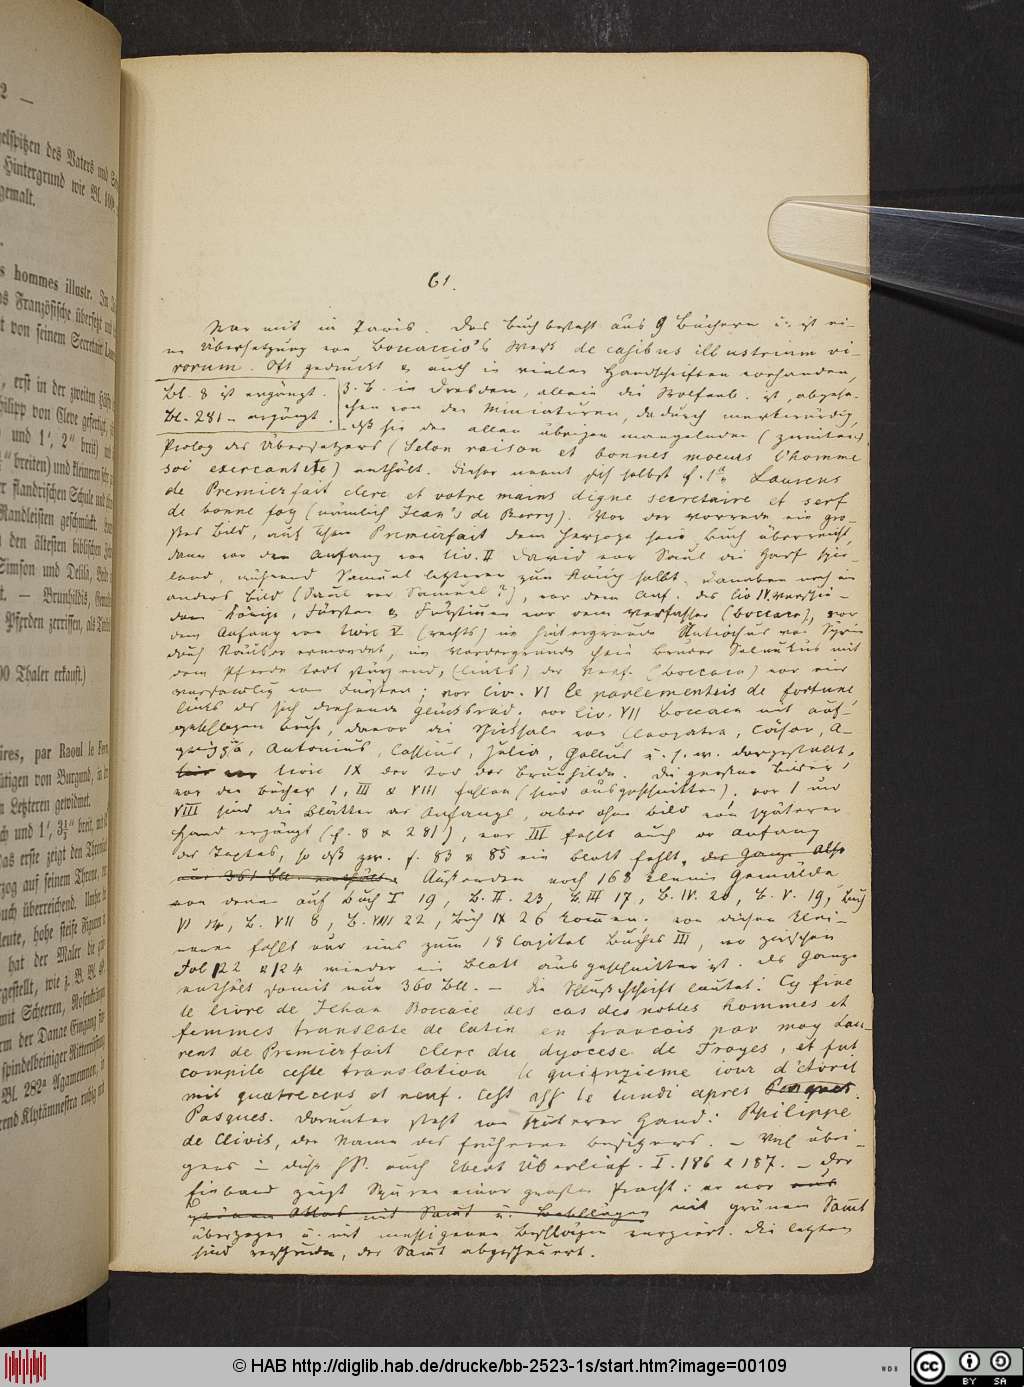 2 —
gelspitzen des Vaters und
Hintergrund wie Bl. 109
gemalt.
s hommes illustr.
as Französische übersetzt und
t von seinem Secretair
, erst in der zweiten Hälfte
Philipp von Cleve gefertigt,
und 1', 2" breit)
" breiten) und kleineren
er flandrischen Schule und
Randleisten geschmückt.
n den ältesten biblischen
Simson und Delila,
t. — Brunhildis,
Pferden zerrissen, als
00 Thaler erkauft.)
ires, par Raoul le Fev
ütigen von Burgund, in
n Letzteren gewidmet.
ch und 1', 3½" breit, mit
as erste zeigt den
zog auf seinem Throne,
uch überreichend.
leute, hohe steife Figuren
hat der Maler die
gestellt, wie z. B. Bl.
mit Scheeren,
rm der Danae Eingang
spindelbeiniger Ritterrüstung
Bl. 282ᵃ Agamemnon, in
ernd Klytämnestra ruhig mit
61.
War mit in Paris. Das Buch besteht aus 9 Büchern u. ist ei-
ne Übersetzung von Boccaccio's Werk de casibus illustrium vi-
rorum. Oft gedruckt & auch in vielen Handschriften vorhanden,
Bl. 8 ist ergänzt.
Bl. 281 - ergänzt.
z. B. in Dresden, allein die Wolfenb. ist, abgese-
hen von den Miniaturen, dadurch merkwürdig,
daß sie den allen übrigen mangelnden (zweiten)
Prolog des Übersetzers (Selon raison et bonnes moeurs l'homme
soi exercantite) enthält. Dieser nennt sich selbst f. 1ᵃ Laurens
de Premierfait clerc et votre moins digne secretaire et serf
de bonne foy (nämlich Jean's de Berry). Vor der Vorrede ein gro-
ßes Bild, auf dem Premierfait dem Herzoge sein Buch überreicht,
dann vor dem Anfang von liv. II David vor Saul die Harf spie-
lend, während Samuel letzteren zum König salbt. Daneben noch ein
anders Bild (Saul vor Samuel?), vor dem Anf. des liv IV. verschie-
dene Könige, Fürsten & Fürstinnen vor dem Verfasser (Boccace), vor
dem Anfang von livre V (rechts) im Hintergrunde Antiochus von Syrien
durch Räuber ermordet, im Vordergrunde sein Bruder Seleukus mit
dem Pferde todt stürzend, (links) der Verf. (Boccace) vor einer
Versamlung von Fürsten; vor liv. VI le parlement de fortune,
links das sich drehende Glücksrad. vor liv. VII Boccace mit auf-
geschlagenem Buche, davor die Schicksale von Cleopatra, Cäsar, A-
grippa, Antonius, Cassius, Julia, Gallus u. s. w. dargestellt,
vor livre IX der Tod der Brunhilde. Die großen Bilder
vor den Büchern I, III & VIII fehlen (sind ausgeschnitten), vor I und
VIII sind die Blätter des Anfangs, aber ohne Bild von späterer
Hand ergänzt (f. 8 & 281), vor III fehlt auch der Anfang
des Textes, so daß zw. f. 83 & 85 ein Blatt fehlt, das Ganze also
nur 361 Bll. enthält. Außerdem noch 168 kleine Gemälde
von denen auf Buch I 19, B. II. 23, B. III 17, B. IV. 20, B. V. 19, Buch
VI 14, B. VII 8, B. VIII 22, Buch IX 26 kommen. Von diesen klei-
neren fehlt nur eins zum 19 Capitel Buches III, wo zwischen
Fol 122 & 124 wieder ein Blatt ausgeschnitten ist. Das Ganze
enthält somit nur 360 Bll. — Die Schlußschrift lautet: Cy fine
le livre de Jehan Boccace des cas des nobles hommes et
femmes translate de latin en francois par moy Lau-
rent de Premierfait clerc du dyocese de Troyes, et fut
compile ceste translation le quinzieme iour d'Avril
mil quatrecens et neuf. Cest ass le lundi apres Pasques.
Pasques. Darunter steht von späterer Hand: Philippe
de Clivis, der Name des früheren Besitzers. — Vgl. übri-
gens über diese HS. auch Ebert Überlief. I. 186 & 187. — Der
Einband zeigt Spuren einer großen Pracht: er war aus
grünem Atlas mit Samt u. Beschlägen mit grünem Samt
überzogen u. mit messingenen Beschlägen verziert. Die letzten
sind verschwunden, der Samt abgescheuert.
© HAB http://diglib.hab.de/drucke/bb-2523-1s/start.htm?image=00109
WDB
cc BY SA